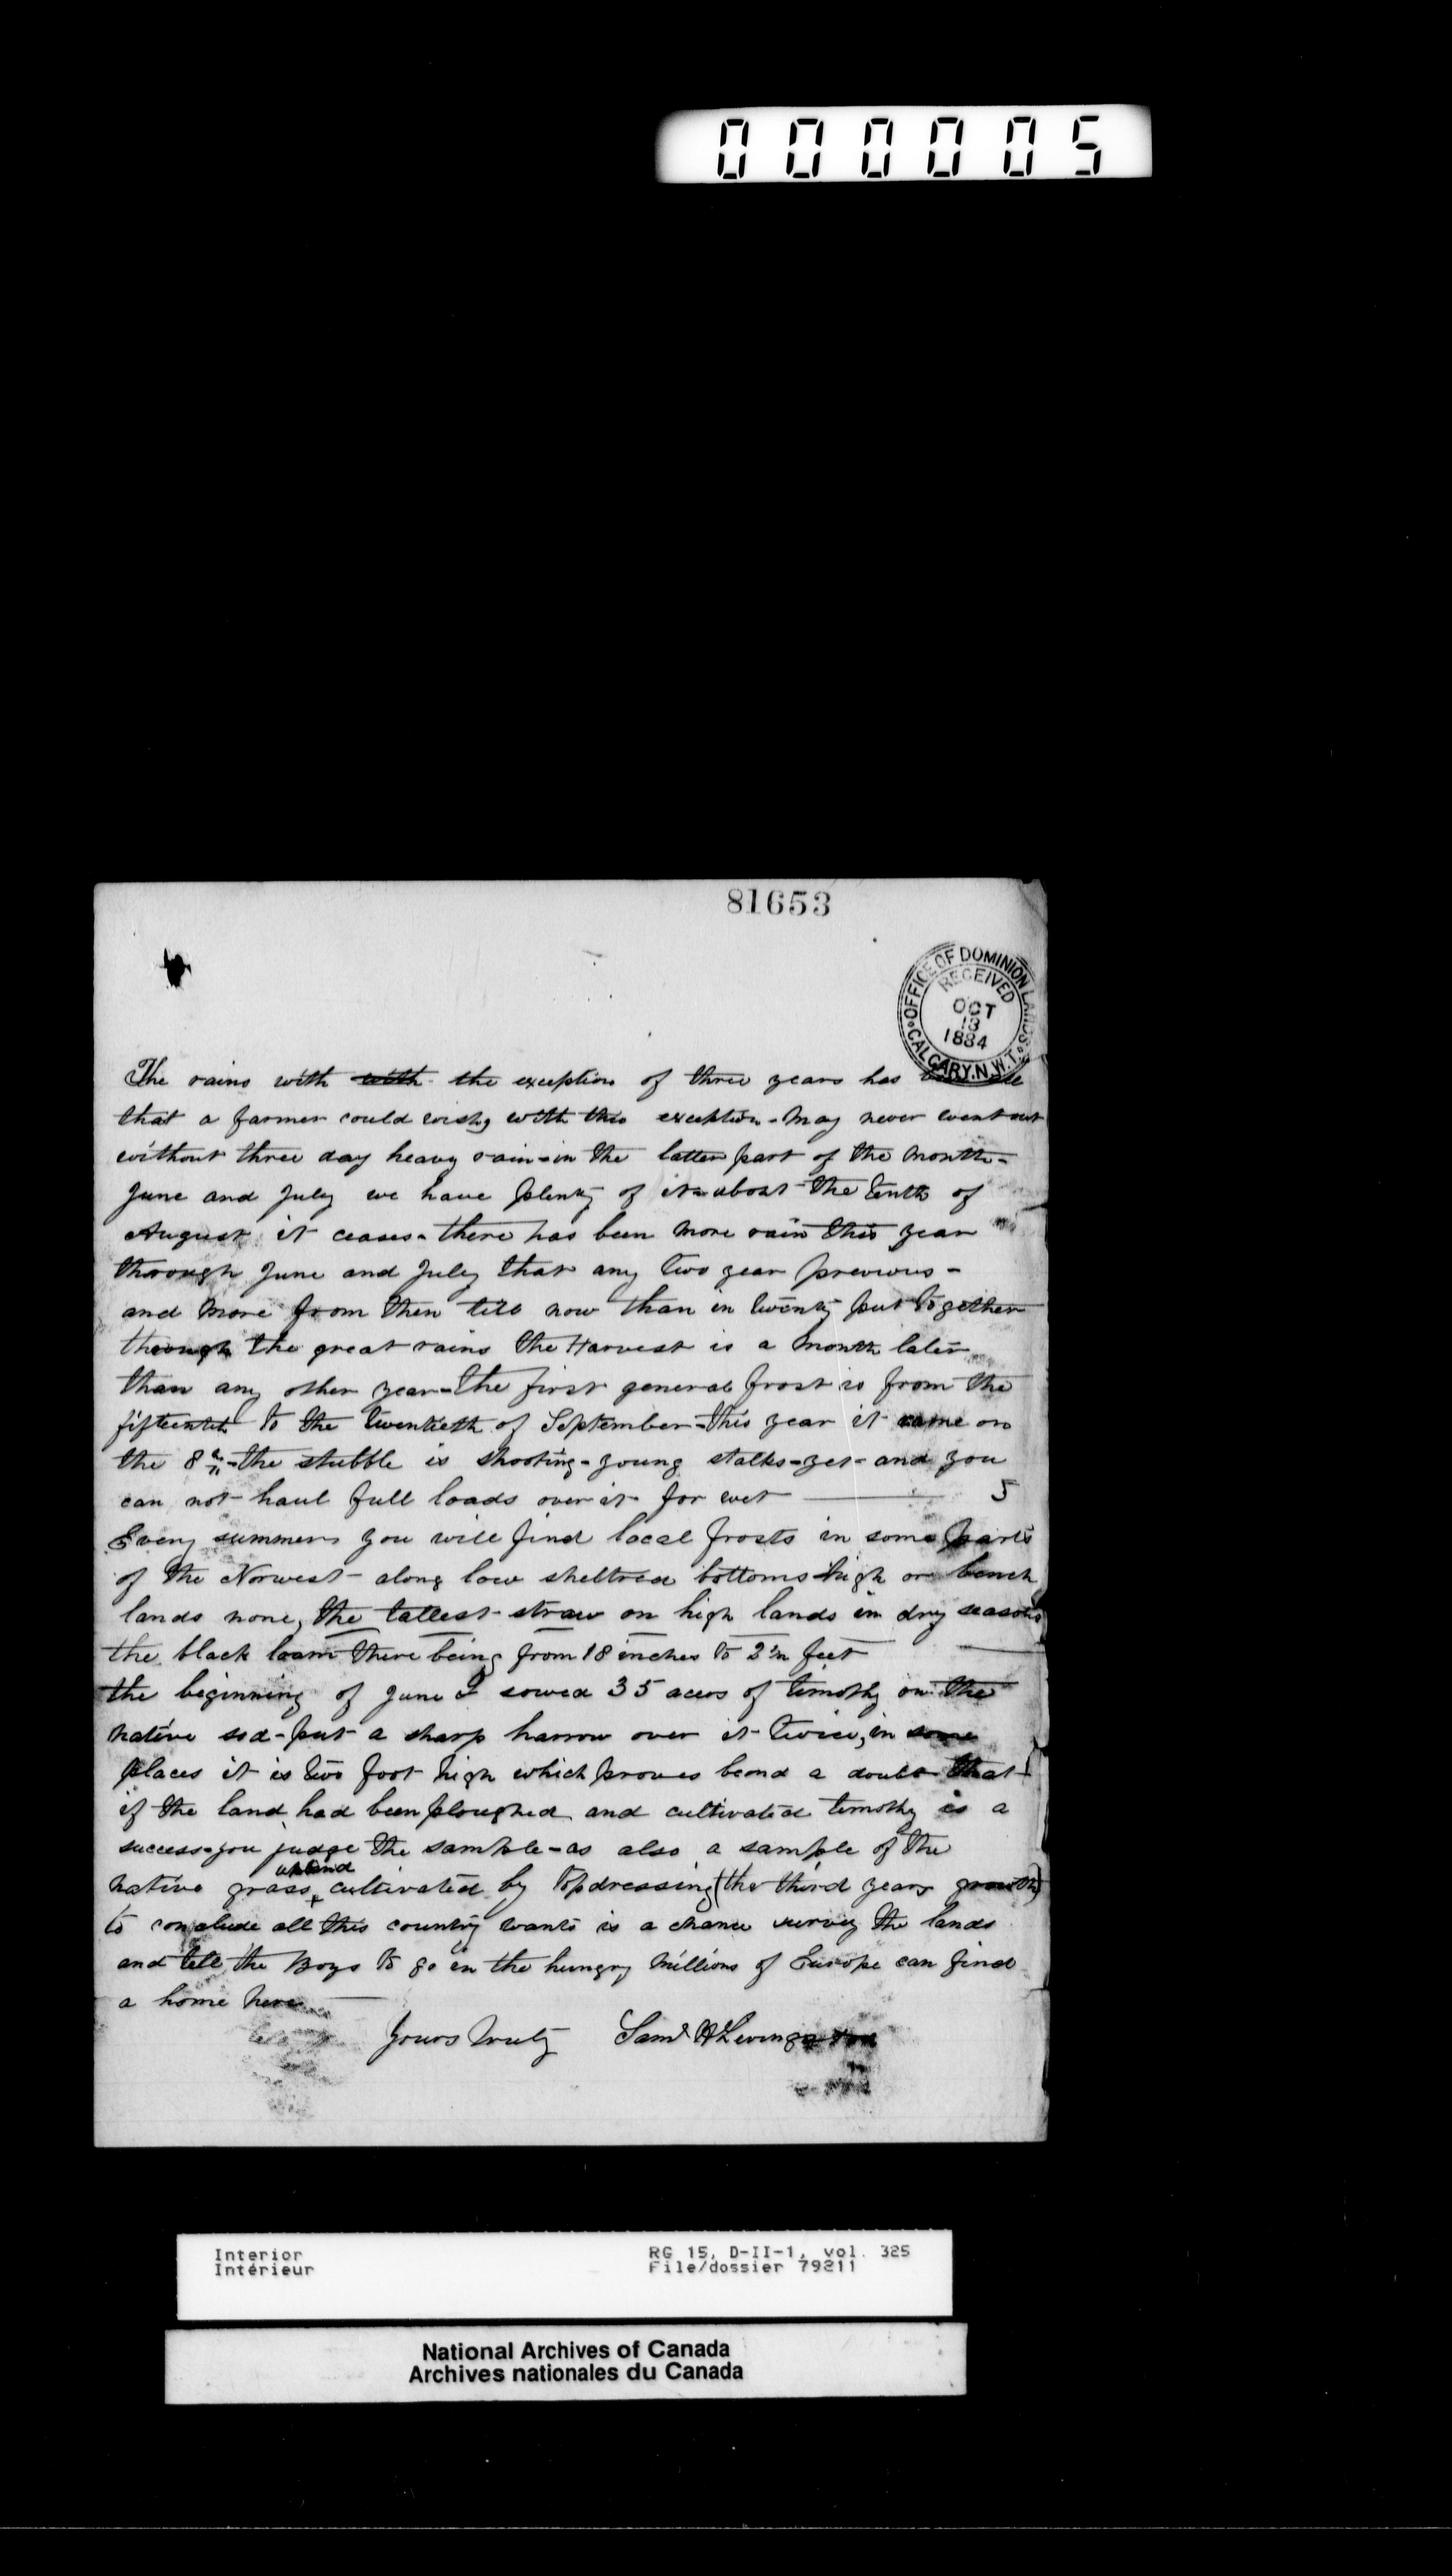 000005
81653
OFFICE OF DOMINION LANDS
RECEIVED
OCT
13
1884
CALGARY. N.W.T.
The rains with with the exception of three years has
that a farmer could wish, with this exception - May never went out
without three day heavy rain - in the latter part of the month -
June and July we have plenty of it - about the tenth of
August it ceases - there has been more rain this year
through June and July that any two year previous -
and more from then till now than in twenty put together
through the great rains the Harvest is a month later
than any other year - the first general frost is from the
fifteenth to the twentieth of September - this year it came on
the 8th - the stubble is shooting - young stalks - yet - and you
can not haul full loads over it for wet 5
Every summer you will find local frosts in some parts
of the Norwest - along low sheltred bottoms high or bench
lands none, the tallest straw on high lands in dry seasons
the black loam there being from 18 inches to 2½ feet
the beginning of June I sowed 35 acers of timothy on the
native sod - put a sharp harrow over it twice, in some
places it is two foot high which proves beond a doubt that
if the land had been ploughed and cultivated timothy is a
success - you judge the sample - as also a sample of the
upland
native grass, cultivated by topdressing (the third years growth)
to conclude all this country wants is a chance survey the lands
and tell the Boys to go in the hungry millions of Europe can find
a home here
Yours truly Saml H Livingston
Interior
Intérieur
RG 15, D-II-1, vol. 325
File/dossier 79211
National Archives of Canada
Archives nationales du Canada